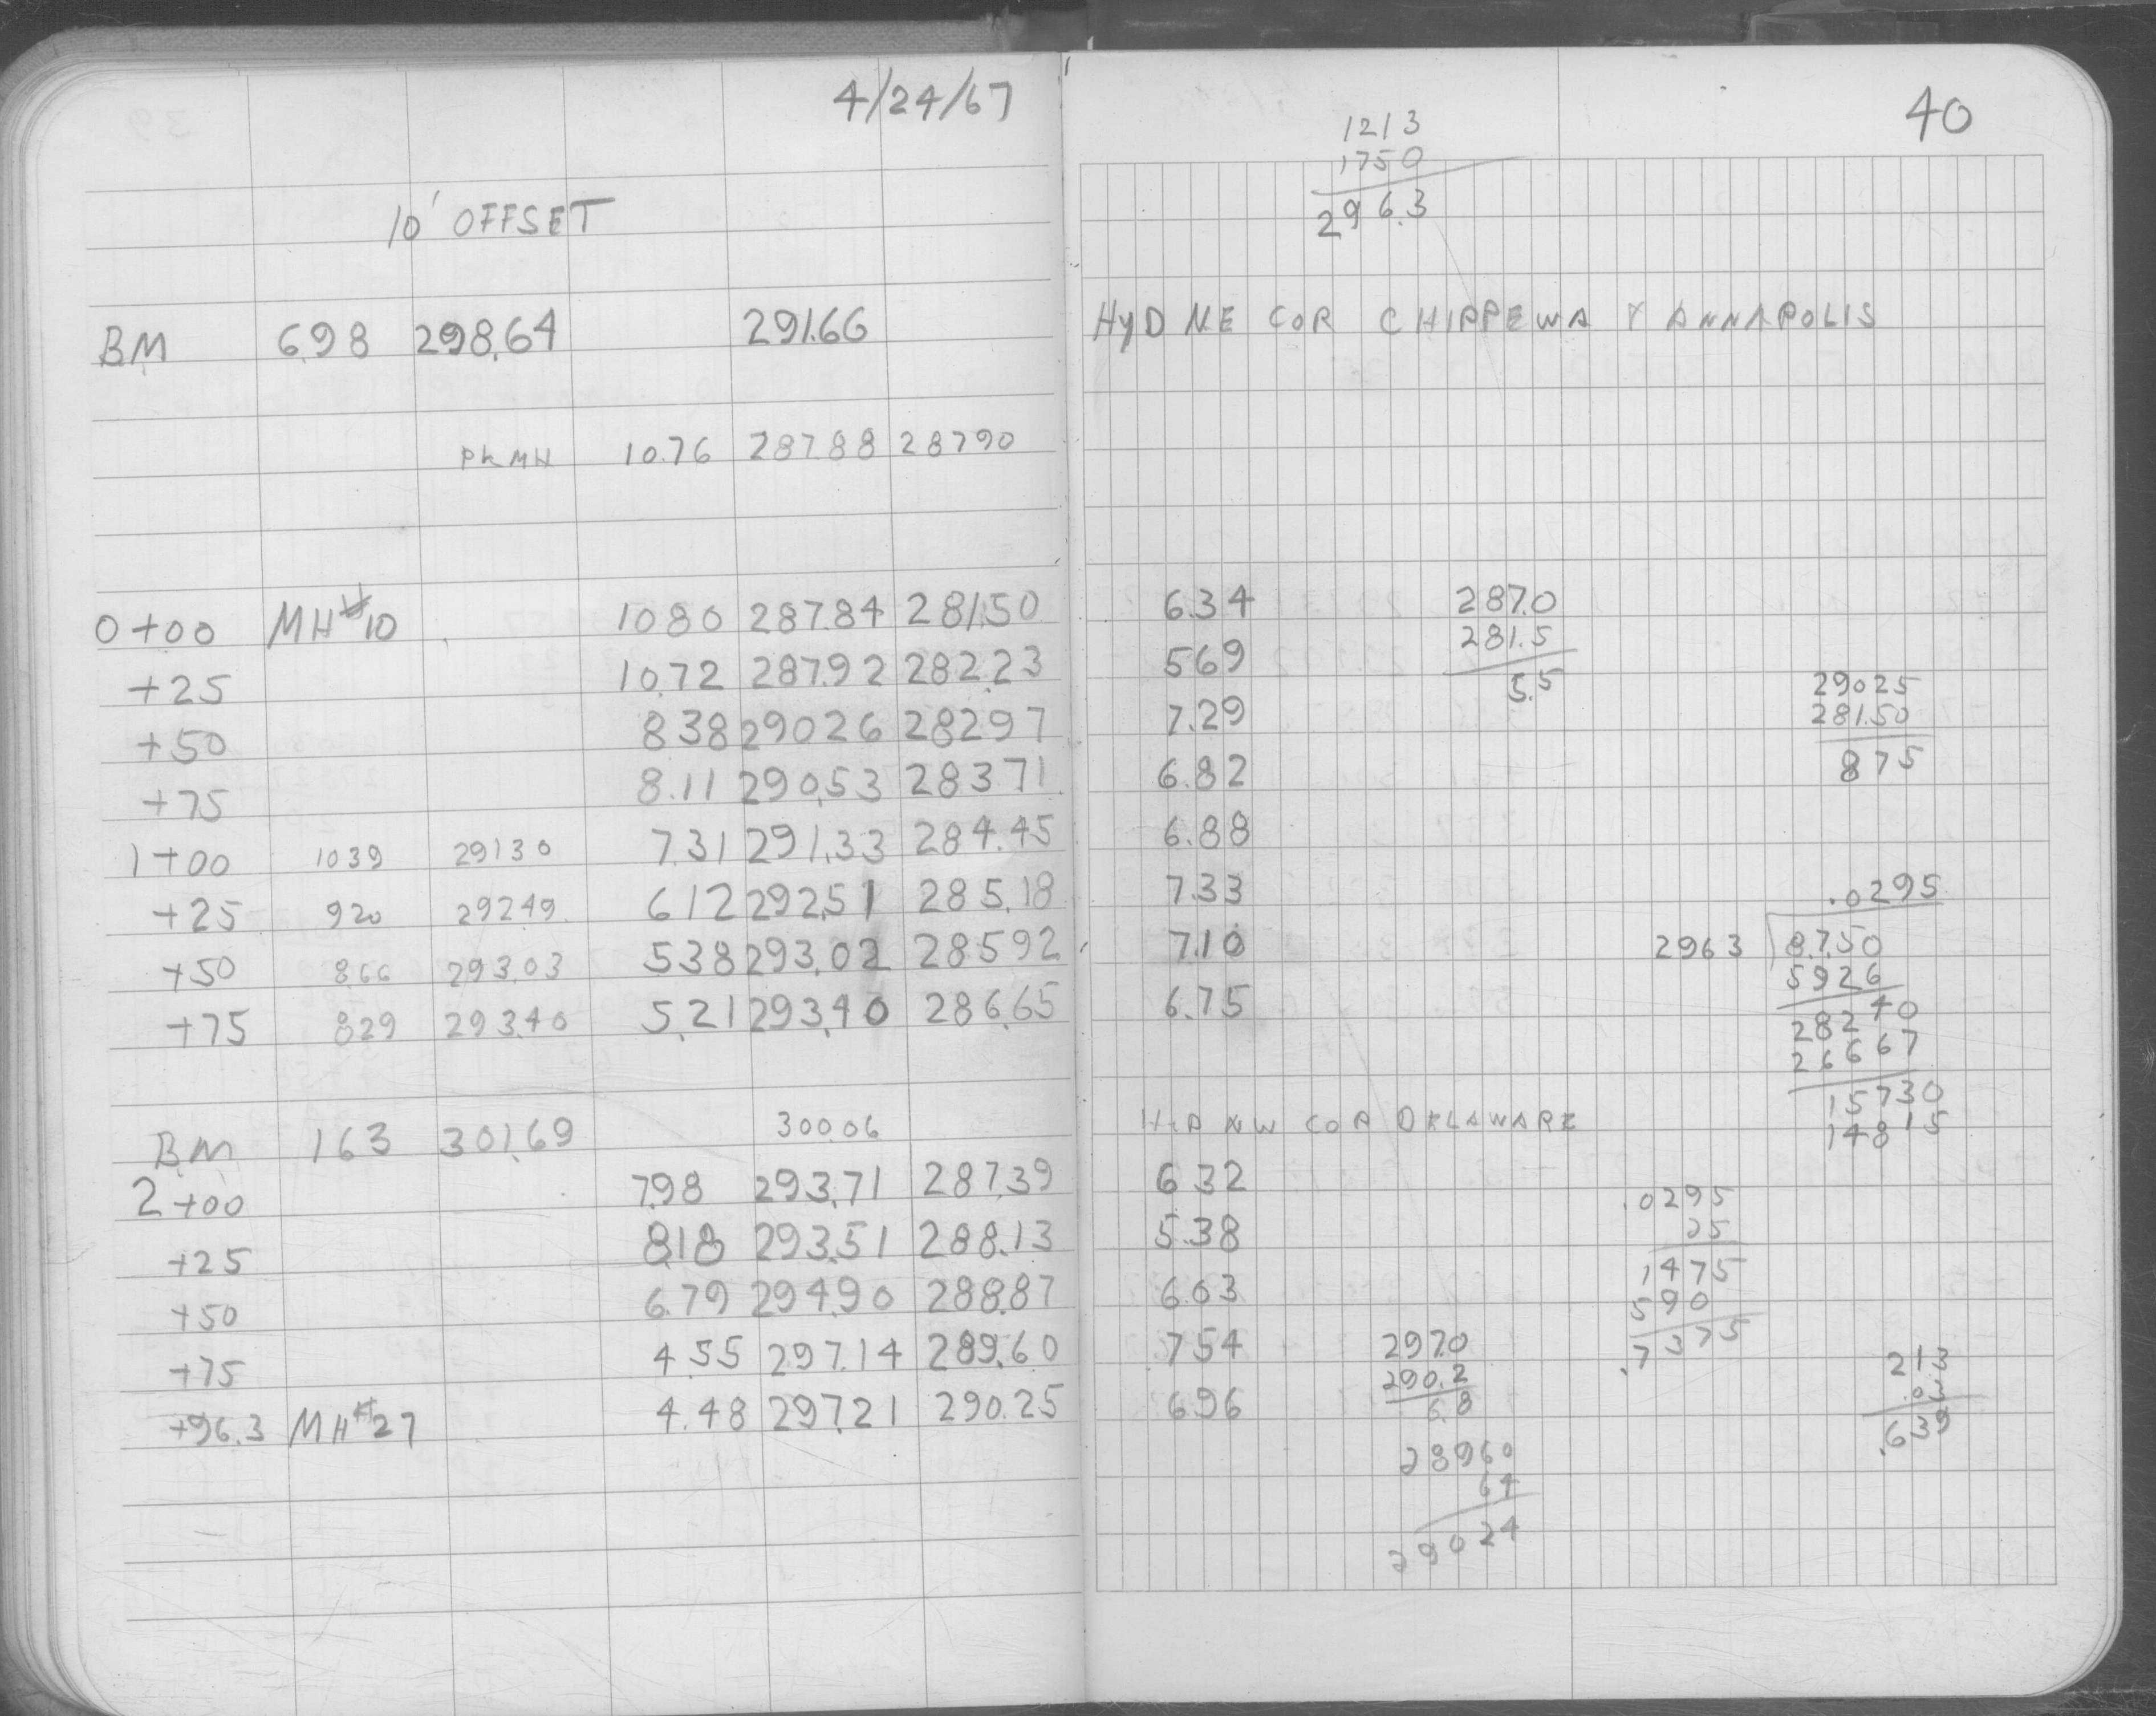 4/24/67
10' OFFSET
BM 6.98 298.64 291.66
PK MH 10.76 287.88 287.90
0+00 MH#10 10.80 287.84 281.50
+25 10.72 287.92 282.23
+50 8.38 290.26 282.97
+75 8.11 290.53 283.71
1+00 1039 29130 7.31 291.33 284.45
+25 920 29249 6.12 292.51 285.18
+50 866 293.03 5.38 293.02 285.92
+75 829 293.40 5.21 293.40 286.65
BM 1.63 301.69 300.06
2+00 7.98 293.71 287.39
+25 8.18 293.51 288.13
+50 6.79 294.90 288.87
+75 4.55 297.14 289.60
+96.3 MH#27 4.48 297.21 290.25
40
1213
1750
296.3
HYD NE COR CHIPPEWA & ANNAPOLIS
6.34
5.69
7.29
6.82
6.88
7.33
7.10
6.75
287.0
281.5
5.5
29025
281.50
875
.0295
2963 8.750
5926
28240
26667
15730
14815
HYD NW COR DELAWARE
6.32
5.38
6.03
7.54
6.96
.0295
25
1475
590
.7375
297.0
290.2
6.8
28960
64
29024
213
.03
.639